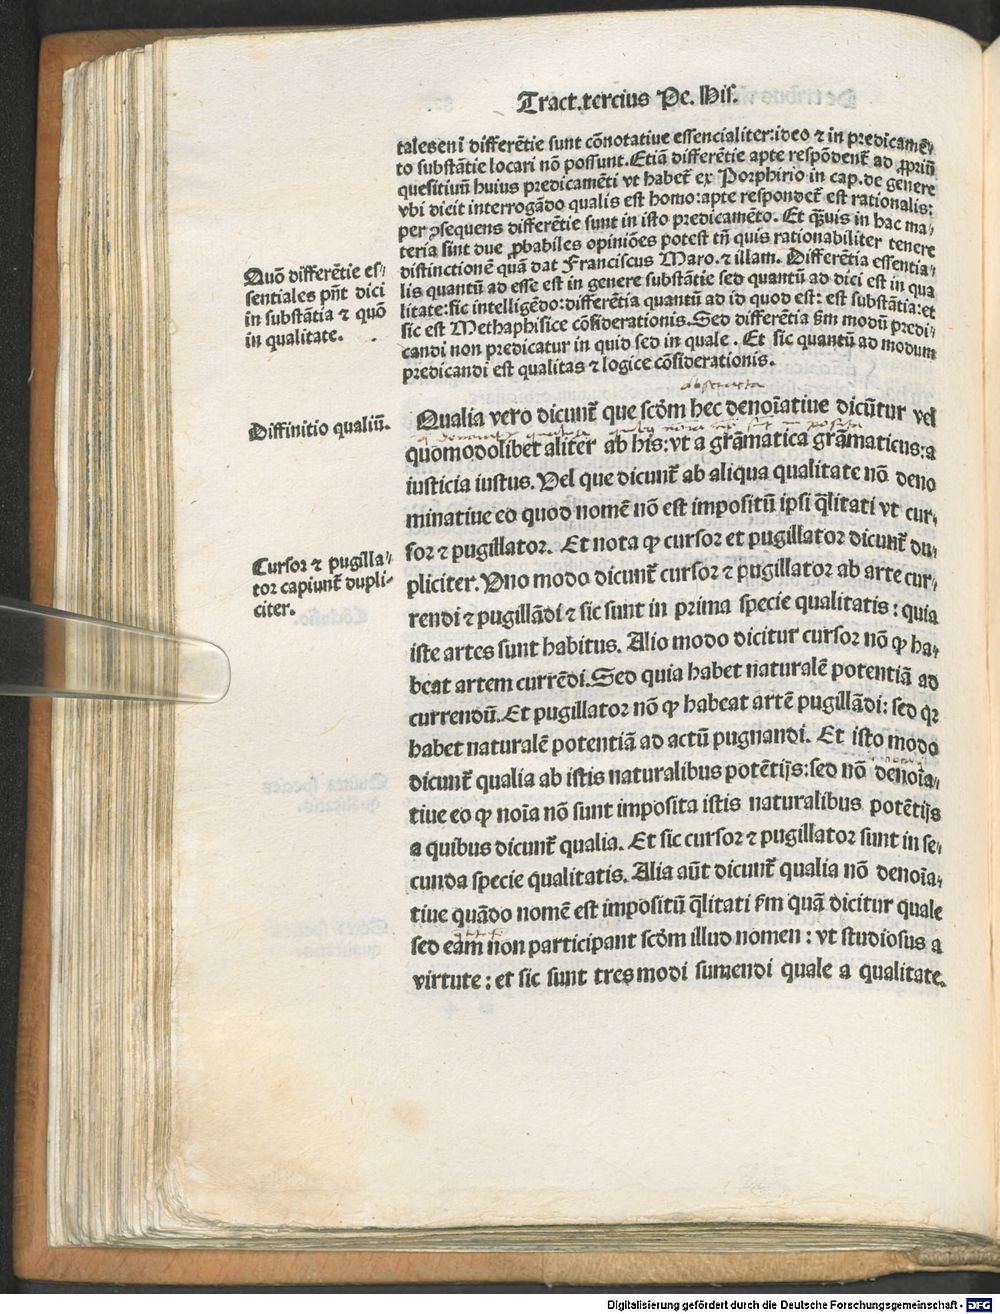 Tract.tercius Pe. His.
taleseni differẽtie sunt cõnotatiue essencialiter:ideo ⁊ in predicamẽ-
to substãtie locari nõ possunt.Etiã differẽtie apte respõdent̃ ad ꝓpriũ
quesitiuũ huius predicamẽti vt habet̃ ex Porphirio in cap.de genere
vbi dicit interrogãdo qualis est homo:apte respondet̃ est rationalis:
per ꝯsequens differẽtie sunt in isto predicamẽto. Et q̃uis in hac ma-
teria sint due ꝓbabiles opiniões potest tñ quis rationabiliter tenere
distinctionẽ quã dat Franciscus Maro.⁊ illam. Differẽtia essentia-
lis quantũ ad esse est in genere substãtie sed quantũ ad dici est in qua
litate:sic intelligẽdo:differẽtia quantũ ad id quod est: est substãtia:et
sic est Methaphisice cõsiderationis.Sed differẽtia ẜm modũ predi-
candi non predicatur in quid sed in quale. Et sic quantũ ad modum
predicandi est qualitas ⁊ logice cõsiderationis.
Quõ differẽtie es-
sentiales pñt dici
in substãtia ⁊ quõ
in qualitate.
abstracta
Diffinitio qualiũ.
Qualia vero dicunt̃ que scd̃m hec denoĩatiue dicũtur vel
quomodolibet aliter ab his:vt a grãmatica grãmaticus:a
iusticia iustus. Vel que dicunt̃ ab aliqua qualitate nõ deno
minatiue eo quod nomẽ nõ est impositũ ipsi q̃litati vt cur-
sor ⁊ pugillator. Et nota ꝙ cursor et pugillator dicunt̃ du-
pliciter. Vno modo dicunt̃ cursor ⁊ pugillator ab arte cur-
rendi ⁊ pugillãdi ⁊ sic sunt in prima specie qualitatis: quia
iste artes sunt habitus. Alio modo dicitur cursor nõ ꝙ ha-
beat artem currẽdi. Sed quia habet naturalẽ potentiã ad
currendũ.Et pugillator nõ ꝙ habeat artẽ pugillãdi: sed qꝛ
habet naturalẽ potentiã ad actũ pugnandi. Et isto modo
dicunt̃ qualia ab istis naturalibus potẽtijs:sed nõ denoĩa-
tiue eo ꝙ noĩa nõ sunt imposita istis naturalibus potẽtijs
a quibus dicunt̃ qualia. Et sic cursor ⁊ pugillator sunt in se-
cunda specie qualitatis. Alia aũt dicunt̃ qualia nõ denoĩa-
tiue quãdo nomẽ est impositũ q̃litati ẜm quã dicitur quale
sed eam non participant scd̃m illud nomen: vt studiosus a
virtute: et sic sunt tres modi sumendi quale a qualitate.
Cursor ⁊ pugilla-
tor capiunt̃ dupli-
citer.
Digitalisierung gefördert durch die Deutsche Forschungsgemeinschaft - DFG